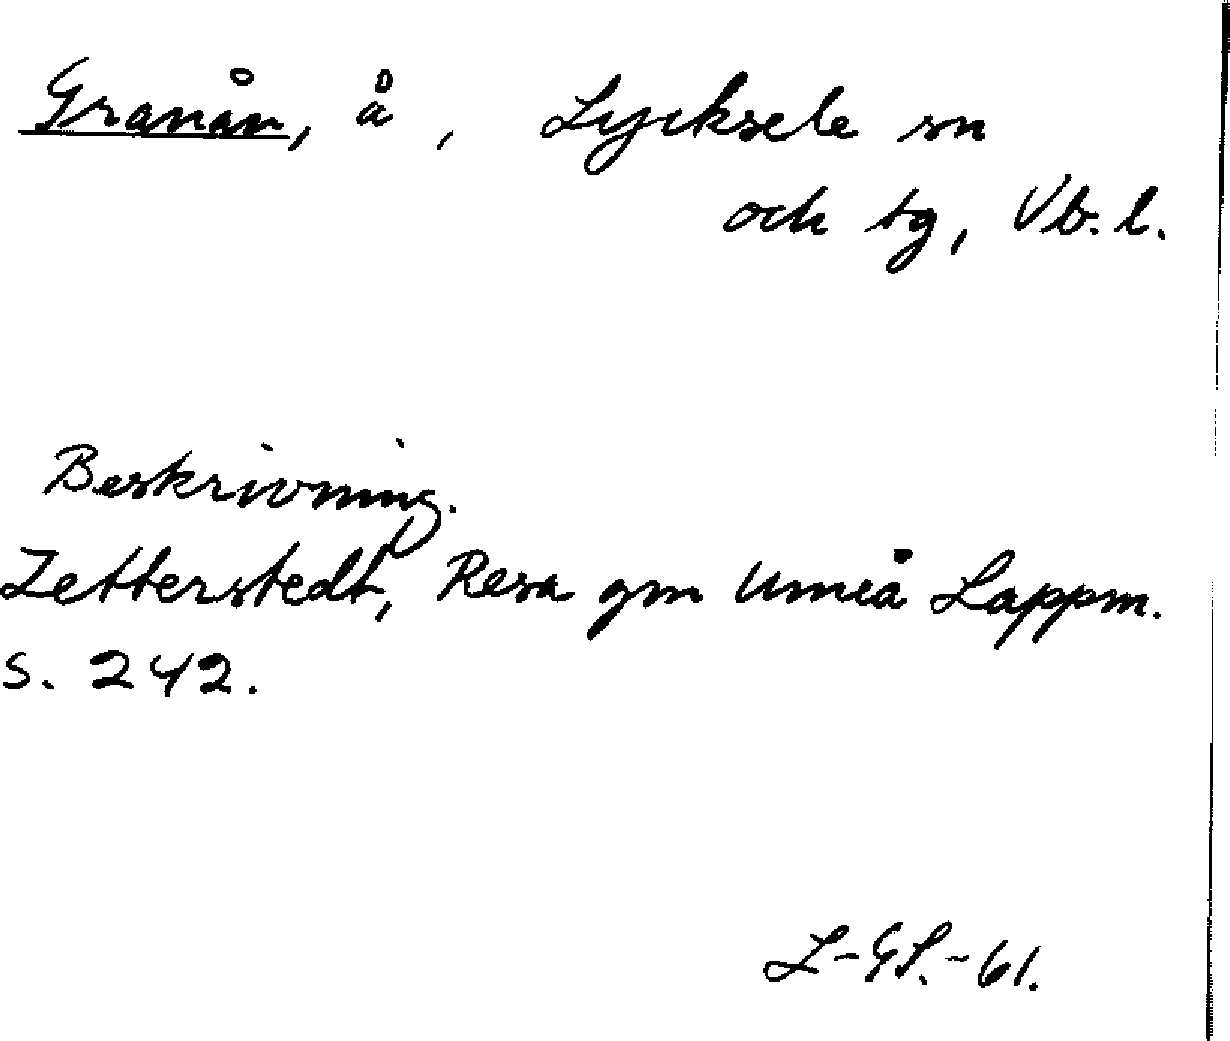 Granån, å, Lycksele sn
och tg, Vb. l.
Beskrivning.
Zetterstedt, Resa gm Umeå Lappm.
s. 242.
L-GS.-61.